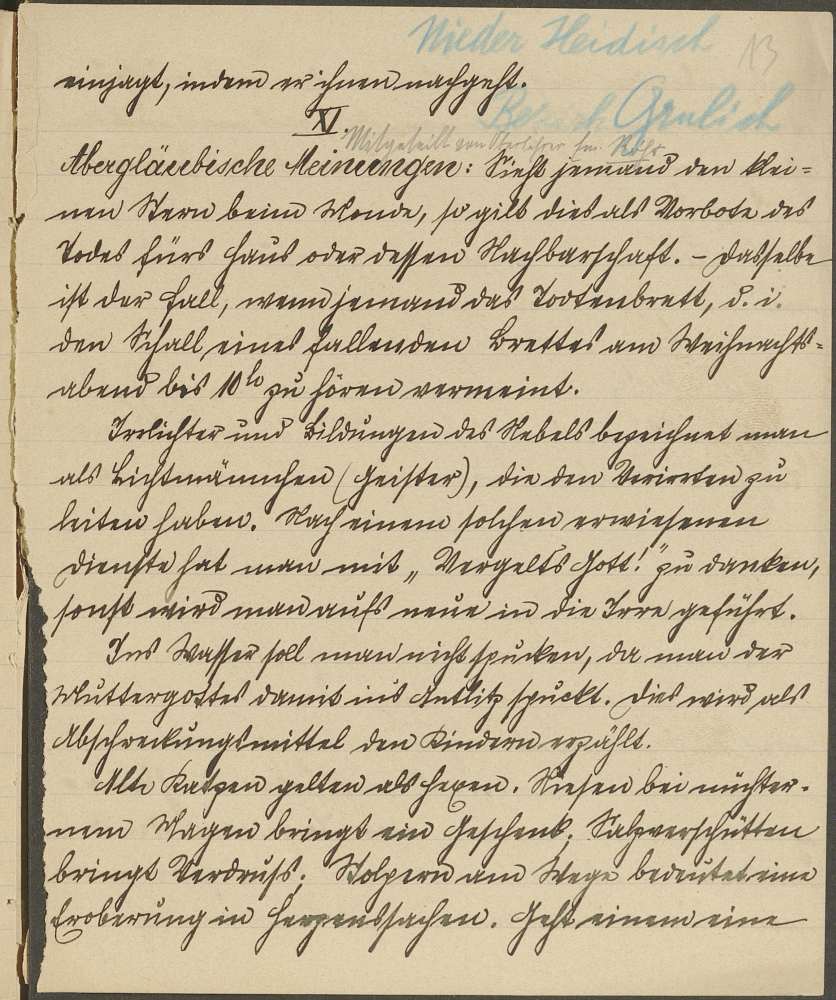 Nieder Heidisch
13
einjagt, indem er ihnen nachgeht.
Grulich
XI.
Mitgeteilt von Oberlehrer
Abergläubische Meinungen: Sieht jemand den klei=
nen Stern beim Monde, so gilt dies als Vorbote des
Todes fürs Haus oder dessen Nachbarschaft. – Dasselbe
ist der Fall, wenn jemand das Todtenbrett, d. i.
den Schall eines fallenden Brettes am Weihnachts=
abend bis 10h zu hören vermeint.
Irrlichter und Bildungen des Nebels bezeichnet man
als Lichtmännchen (Geister), die den Verirrten zu
leiten haben. Nach einem solchen erwiesenen
Dienste hat man mit „Vergelts Gott!" zu danken,
sonst wird man aufs neue in die Irre geführt.
Ins Wasser soll man nicht spucken, da man der
Muttergottes damit ins Antlitz spuckt. Dies wird als
Abschreckungsmittel den Kindern erzählt.
Alte Katzen gelten als Hexen. Niesen bei nüchter=
nem Magen bringt ein Geschenk. Salzverschütten
bringt Verdruß. Stolpern am Wege bedeutet eine
Eroberung in Herzenssachen. Geht einem eine